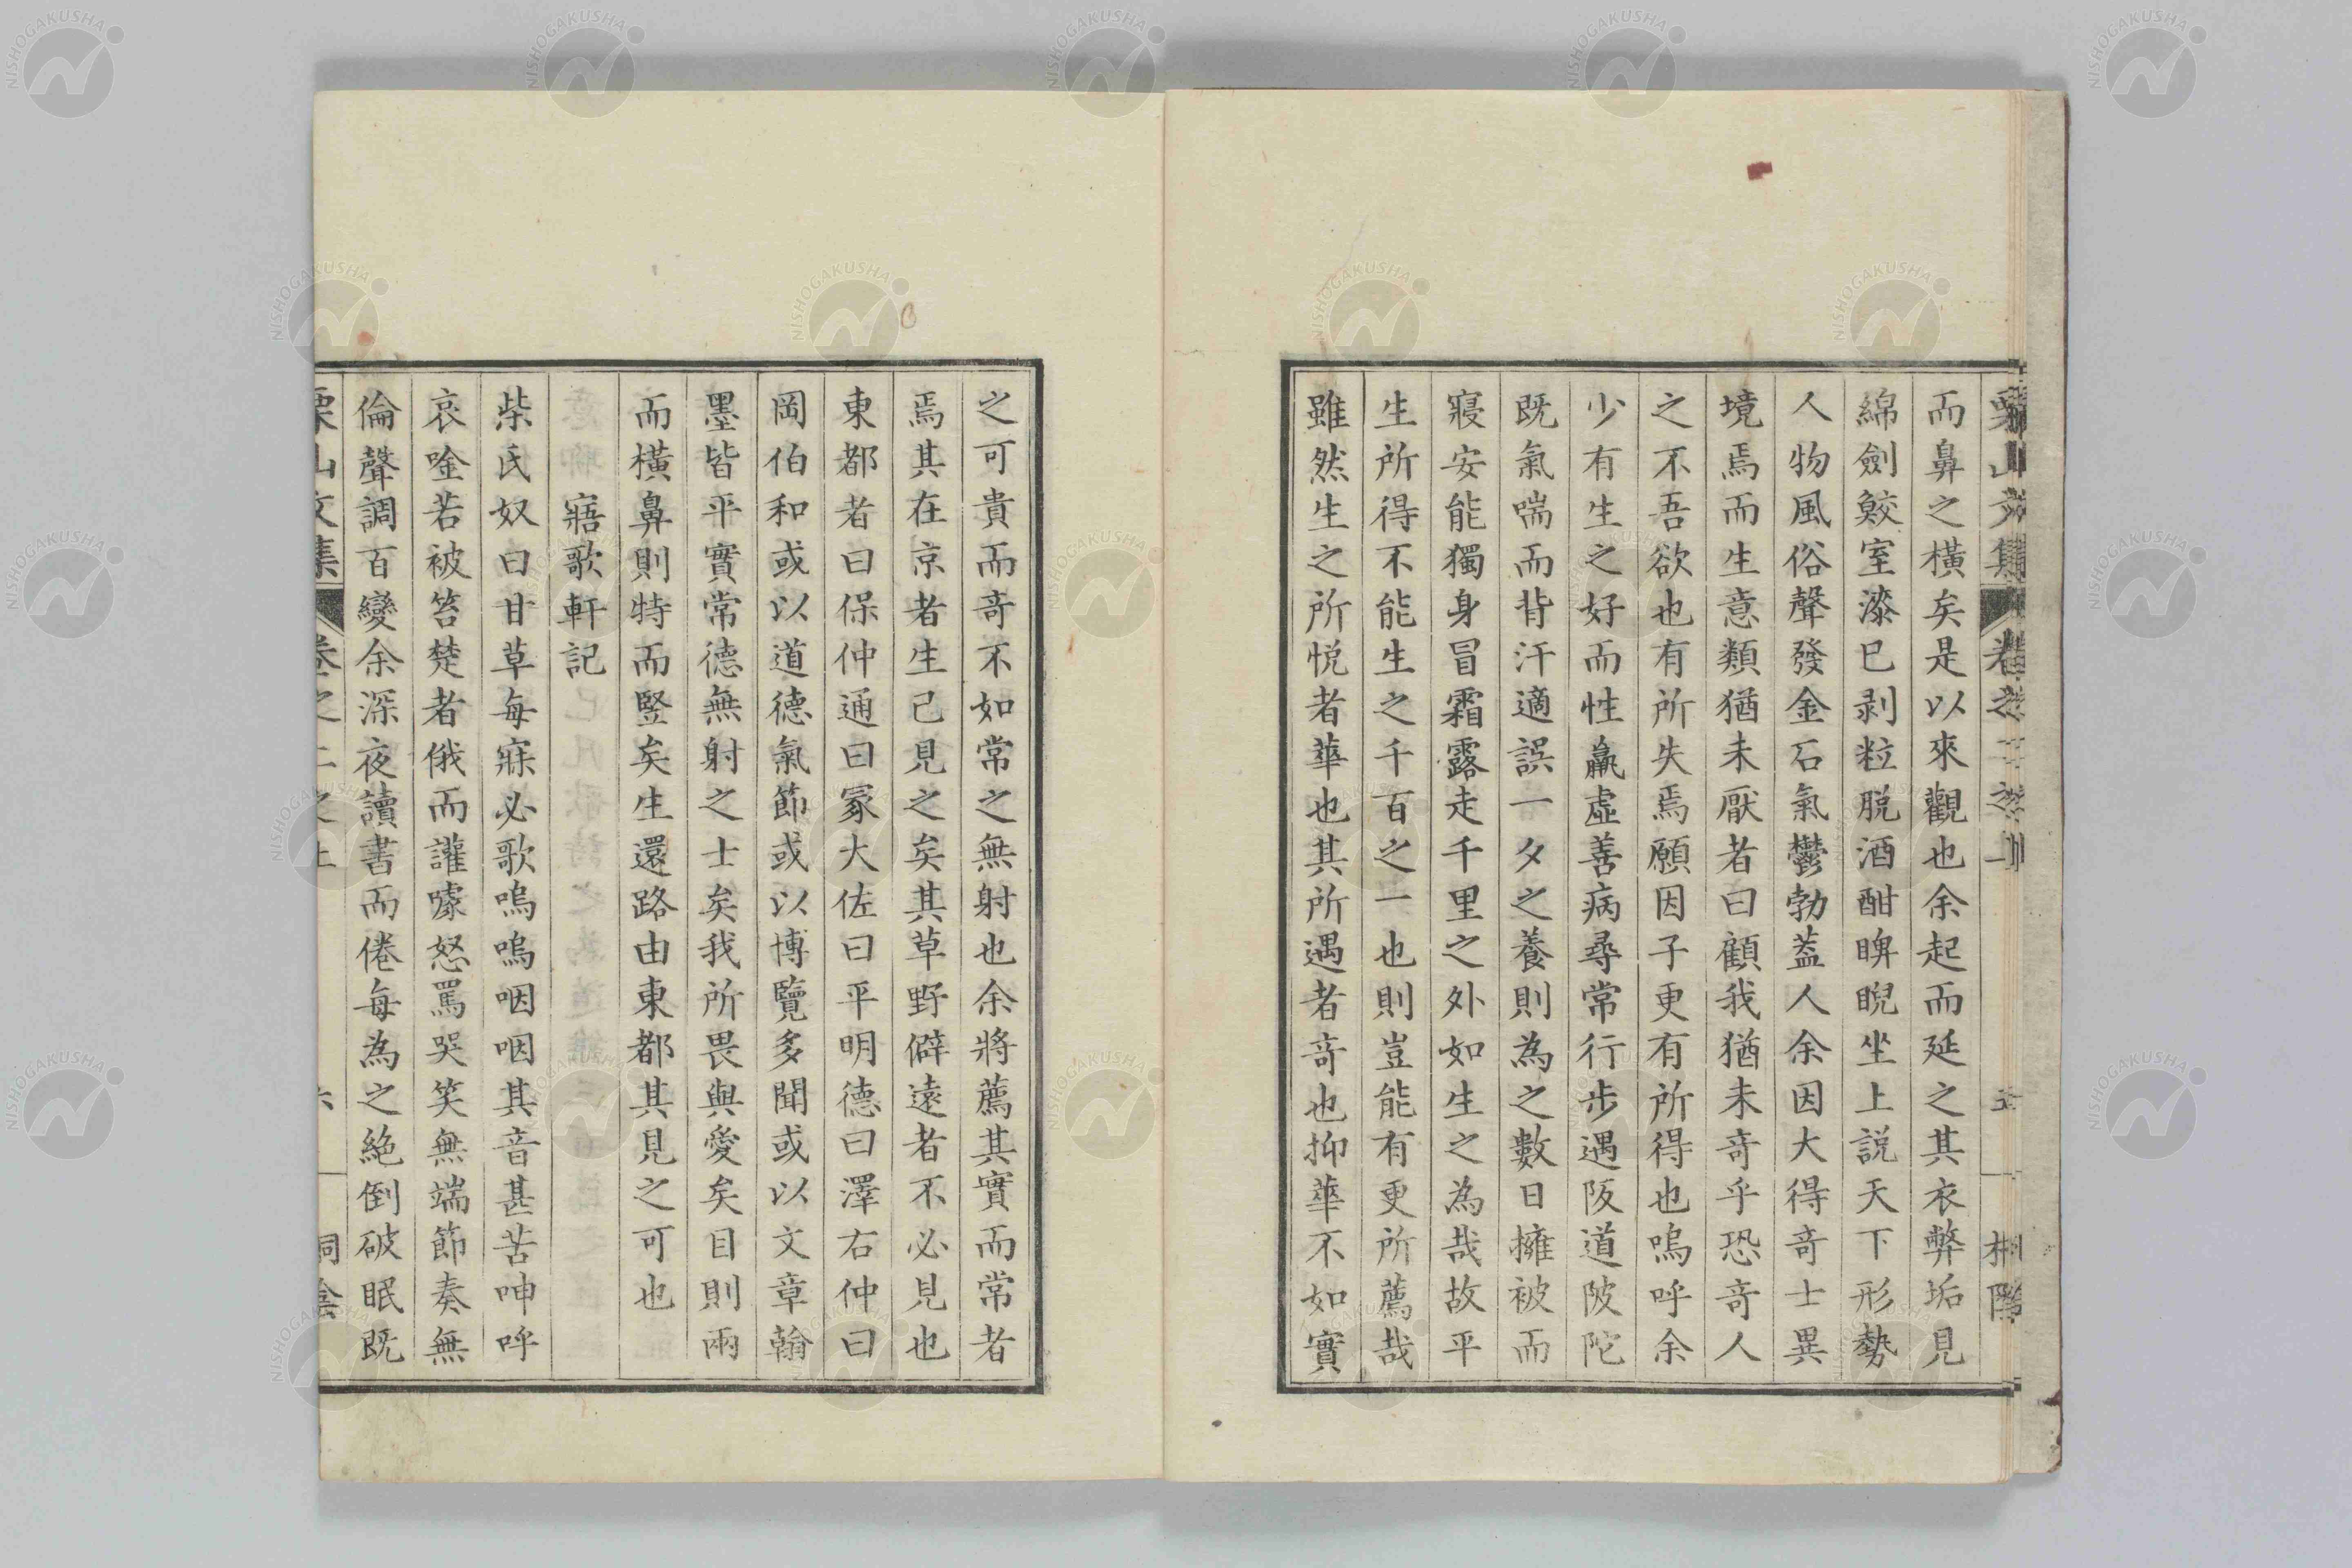 栗山文集 卷之二之上 五 桐陰
而鼻之橫矣是以來觀也余起而延之其衣弊垢見
綿劍鮫室漆巳剥粒脱酒酣睥睨坐上説天下形勢
人物風俗聲發金石氣鬱勃葢人余因大得竒士異
境焉而生意類猶未厭者曰顧我猶未竒乎恐竒人
之不吾欲也有所失焉願因子更有所得也嗚呼余
少有生之好而性羸虛善病尋常行步遇阪道陂陀
既氣喘而背汗適誤一夕之養則為之數日擁被而
寢安能獨身冒霜露走千里之外如生之為哉故平
生所得不能生之千百之一也則豈能有更所薦哉
雖然生之所悦者華也其所遇者竒也抑華不如實
之可貴而竒不如常之無射也余將薦其實而常者
焉其在京者生己見之矣其草野僻遠者不必見也
東都者曰保仲通曰冢大佐曰平明德曰澤右仲曰
岡伯和或以道德氣節或以博覽多聞或以文章翰
墨皆平實常德無射之士矣我所畏與愛矣目則兩
而橫鼻則特而竪矣生還路由東都其見之可也
寤歌軒記
柴氏奴曰甘草每寐必歌嗚嗚咽咽其音甚苦呻呼
哀唫若被笞楚者俄而讙噱怒罵哭笑無端節奏無
倫聲調百變余深夜讀書而倦每為之絶倒破眠既
栗山文集 卷之二之上 六 桐陰